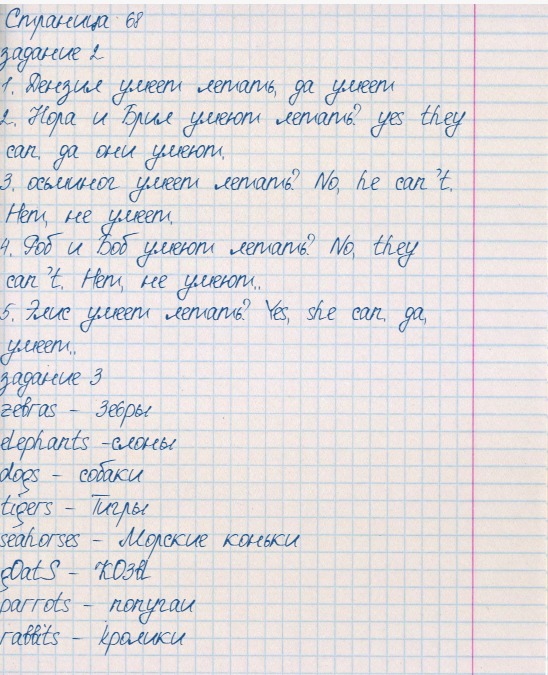 Страница 68
задание 2
1. Дензил умеет летать, да умеет
2. Нора и Брил умеют летать? yes they
can. да они умеют.
3. осьминог умеет летать? No, he can't.
Нет, не умеет.
4. Роб и Боб умеют летать? No, they
can't. Нет, не умеют..
5. Элис умеет летать? Yes, she can. да,
умеет..
задание 3
zebras - Зебры
elephants - слоны
dogs - собаки
tigers - Тигры
seahorses - Морские коньки
gOatS - КОЗЫ
parrots - попугаи
rabbits - кролики